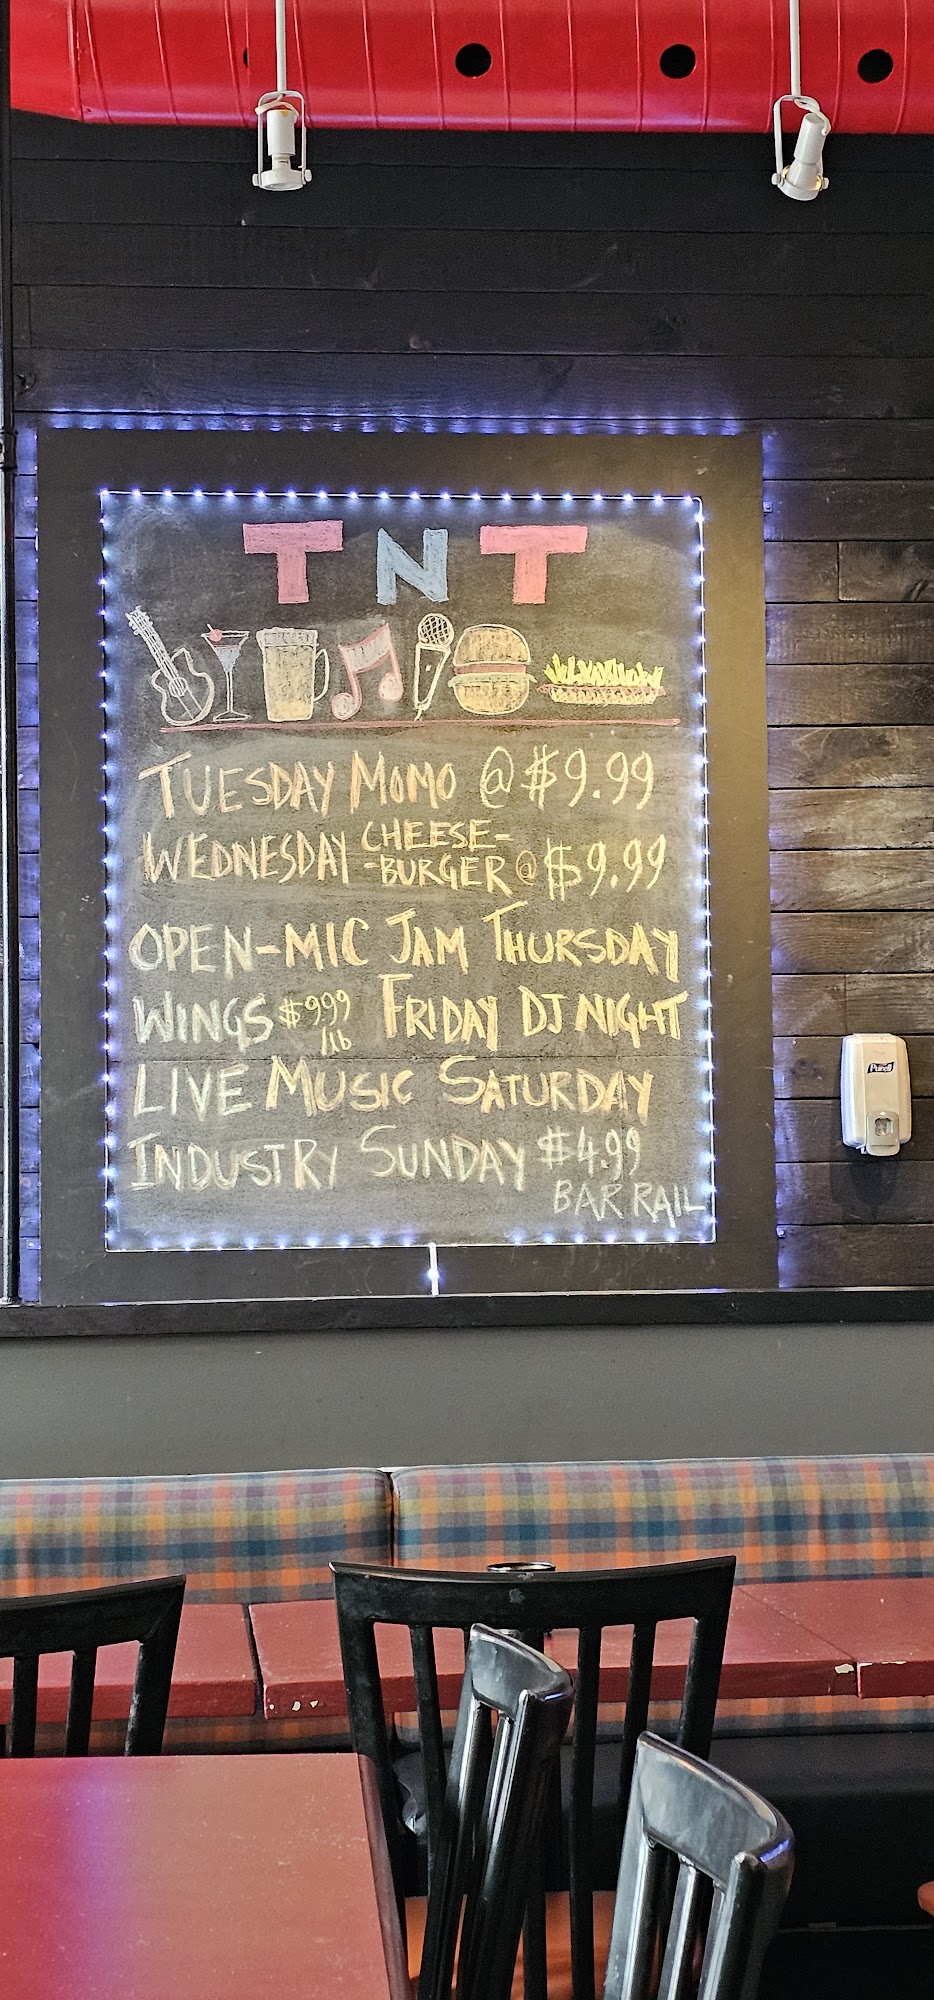 TNT
TUESDAY MOMO @ $9.99
WEDNESDAY CHEESE-
-BURGER @ $9.99
OPEN-MIC JAM THURSDAY
WINGS $999 /lb FRIDAY DJ NIGHT
LIVE MUSIC SATURDAY
INDUSTRY SUNDAY $4.99
BAR RAIL
Purell